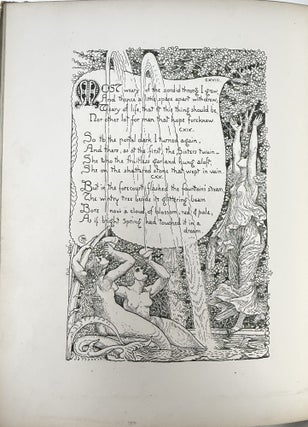 CXVIII.
MOST weary of the sordid throng I grew
And thence a little space apart withdrew,
Weary of life, that if this thing should be
No other lot for man that hope foreknew.
CXIX.
So to the portal dark I turned again,
And there, as at the first, the Sisters twain—
She who the fruitless garland hung aloft,
She on the shattered stone that wept in vain.
CXX.
But in the forecourt flashed the fountain's steam,
The wintry tree beside its glittering beam
Bore now a cloud of blossom, red, & pale,
As if bright spring had touched it in a
dream.